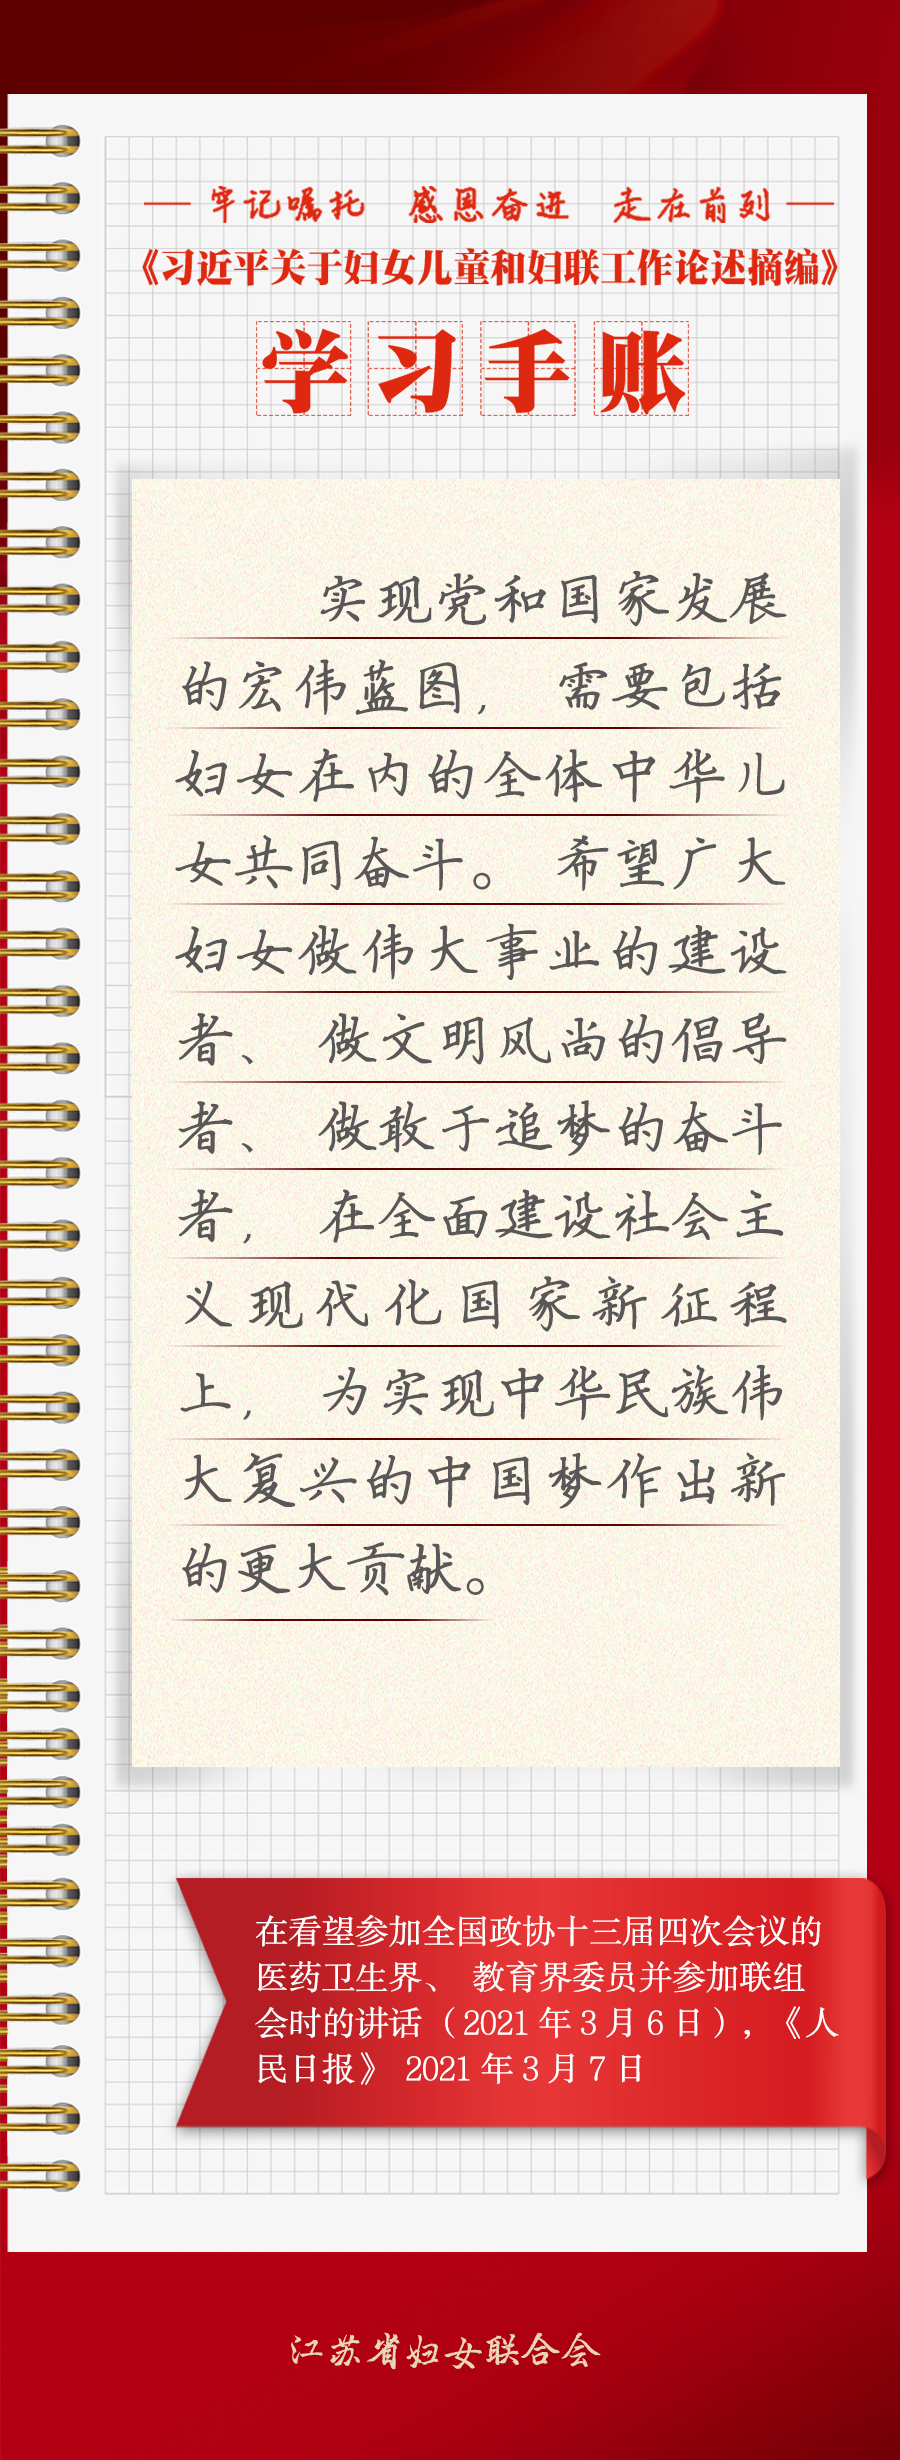 牢记嘱托 感恩奋进 走在前列
《习近平关于妇女儿童和妇联工作论述摘编》
学习手账
实现党和国家发展
的宏伟蓝图， 需要包括
妇女在内的全体中华儿
女共同奋斗。 希望广大
妇女做伟大事业的建设
者、 做文明风尚的倡导
者、 做敢于追梦的奋斗
者， 在全面建设社会主
义现代化国家新征程
上， 为实现中华民族伟
大复兴的中国梦作出新
的更大贡献。
在看望参加全国政协十三届四次会议的
医药卫生界、 教育界委员并参加联组
会时的讲话（2021 年 3 月 6 日），《人
民日报》 2021 年 3 月 7 日
江苏省妇女联合会